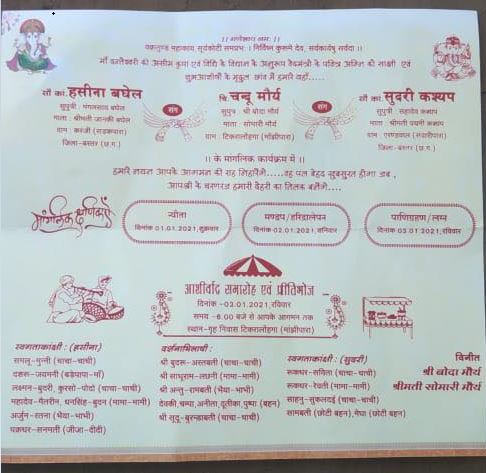 ।। श्री गणेशाय नमः ।।
वक्रतुण्ड महाकाय सूर्यकोटि समप्रभः । निर्विघ्न कुरूमे देव, सर्वकार्येषु सर्वदा ।।
माँ दन्तेश्वरी की असीम कृपा एवं विधि के विधान के अनुरूप वैदमंत्रो के पवित्र अग्नि की साक्षी एवं
शुभआशीषों के मृदुल छांव में हमारे यहाँ.....
सौ कां. हसीना बघेल
सुपुत्री : मंगलसाय बघेल
माता : श्रीमती जानकी बघेल
ग्राम : करंजी (सड़कपारा)
जिला-बस्तर (छ.ग.)
संग
चि. चन्दू मौर्य
सुपुत्र : श्री बोदा मौर्य
माता : सोमारी मौर्य
ग्राम : टिकरालोहगा (मांझीपारा)
संग
सौ कां. सुंदरी कश्यप
सुपुत्री : सहादेव कश्यप
माता : श्रीमती पदमी कश्यप
जिला-बस्तर (छ.ग.)
।। के मांगलिक कार्यक्रम में ।।
हमारे नयन आपके आगमन की राह निहारेंगे.....वह पल बेहद खुबसुरत होगा जब ,
आपश्री के चरणरज हमारी देहरी का तिलक बनेंगे....
मांगलिक घड़ियाँ
न्योता
दिनांक 01.01.2021,शुक्रवार
मण्डप/हरिद्रालेपन
दिनांक 02.01.2021,शनिवार
पाणिग्रहण/लग्न
दिनांक 03.01.2021,रविवार
आशीर्वाद समारोह एवं प्रीतिभोज
दिनांक -03.01.2021,रविवार
समय -6.00 बजे से आपके आगमन तक
स्थान-गृह निवास टिकरालोहगा (मांझीपारा)
स्वागताकांक्षी : (हसीना)
समलू-मुन्नी (चाचा-चाची)
दशरू-जयमनी (बड़ेपापा-माँ)
लक्ष्मन-बुदरी, कुरसो-पोदो (चाचा-चाची)
महादेव-मैतरीन, धनसिंह-बुदन (मामा-मामी)
अर्जुन-रतना (भैया-भाभी)
चक्रधर-सनमती (जीजा-दीदी)
दर्शनाभिलाषी :
श्री बुदरू-अस्तबती (चाचा-चाची)
श्री साधुराम-लछनी (मामा-मामी)
श्री अन्तु-रामबती (भैया-भाभी)
देवकी,चम्पा,अनीता,पुष्पा (बहन)
श्री (चाचा-चाची)
स्वागताकांक्षी : (सुंदरी)
रूकधर-सविता (चाचा-चाची)
रूकधर-रेवती (मामा-मामी)
साहनु-सुकलदई (चाचा-चाची)
सामबती (छोटी बहन),मेघा (छोटी बहन)
विनीत
श्री बोदा मौर्य
श्रीमती सोमारी मौर्य